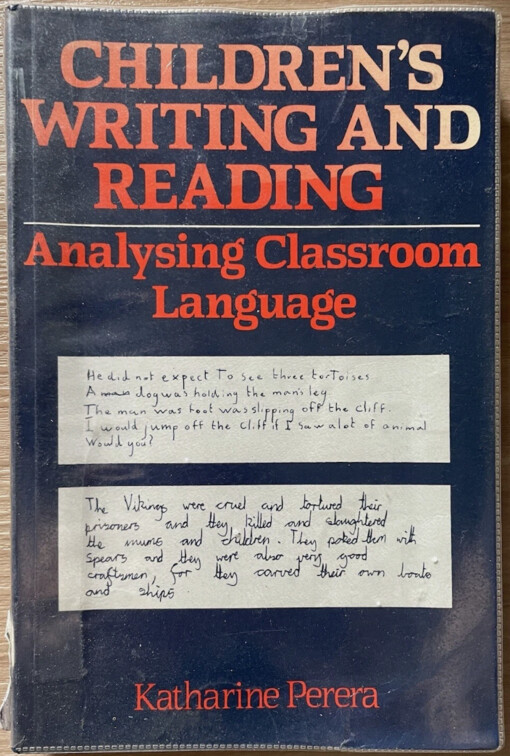 CHILDREN'S
WRITING AND
READING
Analysing Classroom
Language
He did not expect To see three torToises
A man dog was holding the man's leg
The man was foot was slipping off the cliff.
I would jump off the cliff if I saw a lot of animal
Would you?
The Vikings were cruel and tortured their
prisoners and they killed and slaughtered
the mums and children. They poked them with
spears and they were also very good
craftsmen, for they carved their own boats
and ships
Katharine Perera